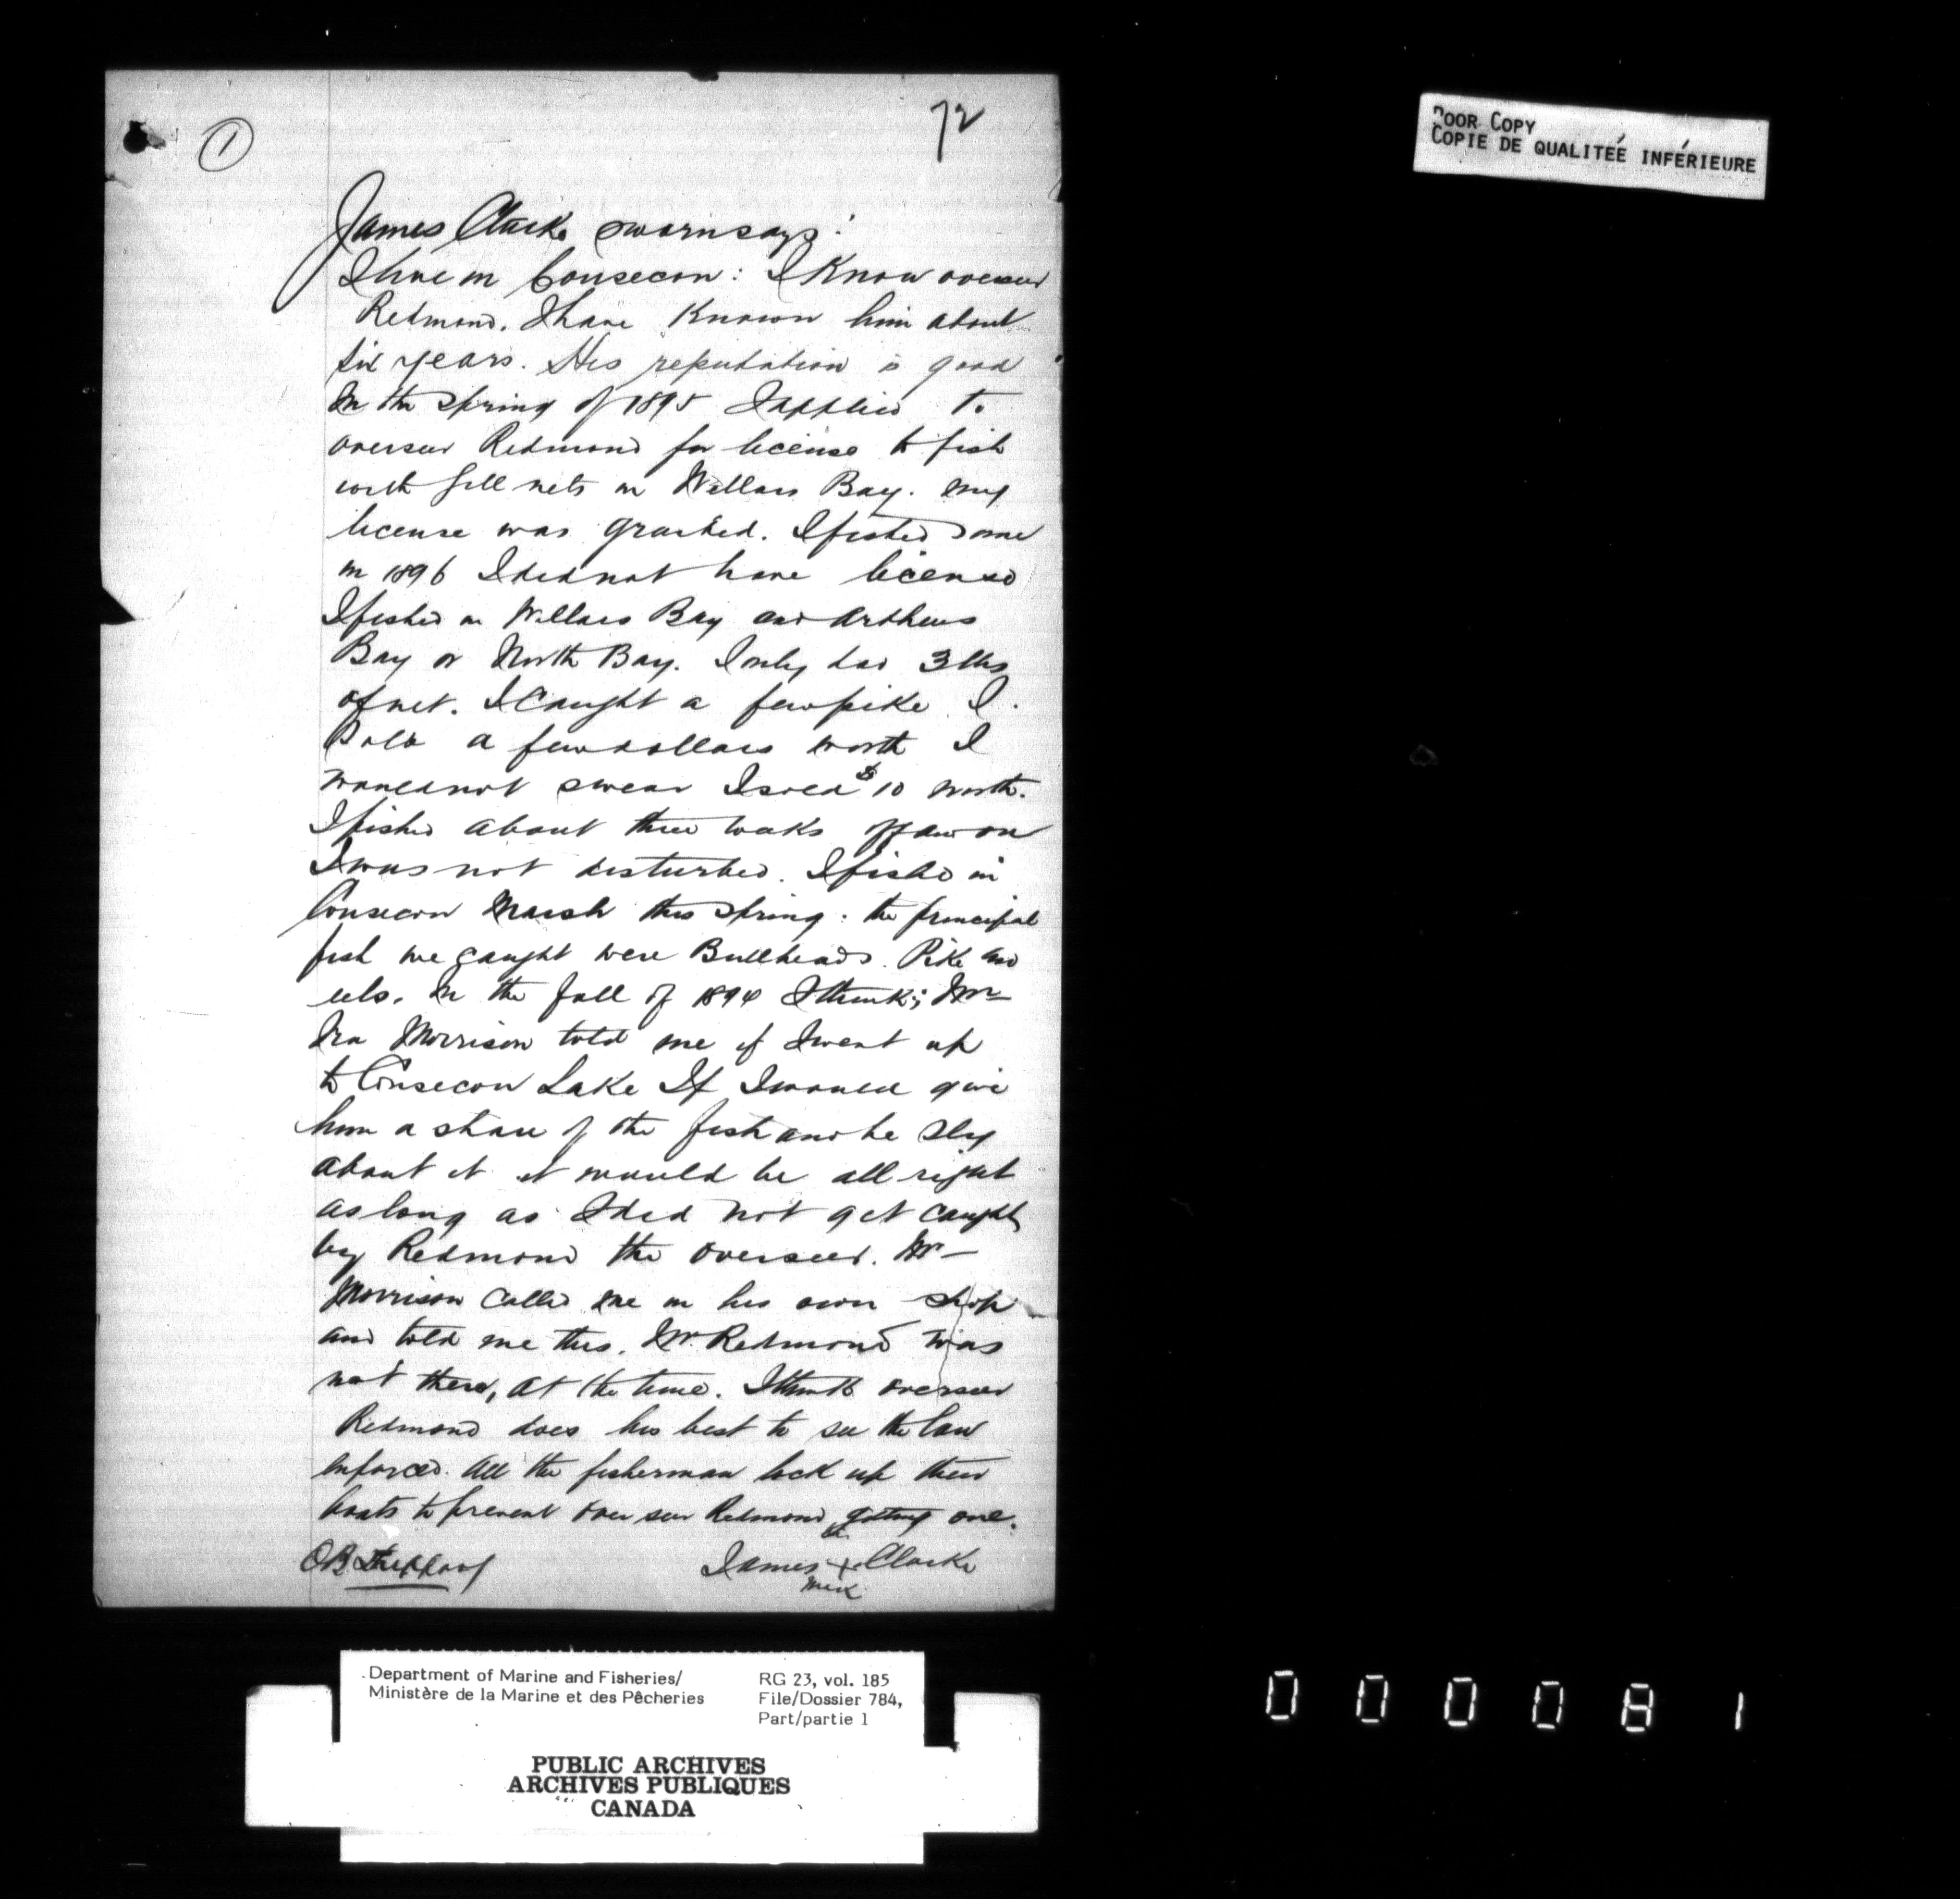 72
①
James Clarke sworn says:
I live in Consecon: I know overseer
Redmond. I have known him about
six years. His reputation is good
In the spring of 1895 I applied to
overseer Redmond for license to fish
with gill nets in Wellars Bay. my
license was granted. I fished some
in 1896 I did not have license
I fished in Wellars Bay and Arthurs
Bay or North Bay. I only had 3 lbs
of net. I caught a few pike I
sold a few dollars worth I
would not swear I sold $10 worth.
I fished about three weeks off and on
I was not disturbed. I fished in
Consecon Marsh this spring. the principal
fish we caught were Bullheads. Pike and
eels. In the fall of 1894 I think; Mr
Ira Morrison told me if I went up
to Consecon Lake If I would give
him a share of the fish and be sly
about it it would be all right
as long as I did not get caught
by Redmond the overseer. Mr
Morrison called me in his own shop
and told me this. Mr. Redmond was
not there, at the time. I think overseer
Redmond does his best to see the law
enforced. All the fisherman lock up their
boats to prevent overseer Redmond getting one.
O B Sheppard
James + Clarke
mark
POOR COPY
COPIE DE QUALITEÉ INFÉRIEURE
Department of Marine and Fisheries/
Ministère de la Marine et des Pêcheries
RG 23, vol. 185
File/Dossier 784,
Part/partie 1
PUBLIC ARCHIVES
ARCHIVES PUBLIQUES
CANADA
000081